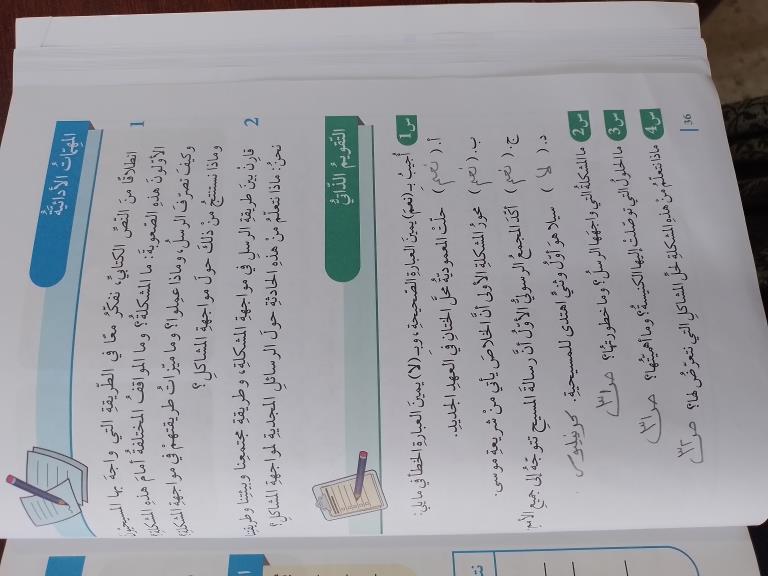 المهمّاتُ الأدائيّةُ
1
انطلاقًا منَ النصِّ الكتابيِّ، نفكّرُ معًا في الطّريقةِ التي واجهَ بها المسيحيّونَ
الأوّلونَ هذهِ الصّعوبةَ: ما المشكلةُ؟ وما المواقفُ المختلفةُ أمامَ هذهِ المشكلةِ؟
وكيفَ تصرّفَ الرسلُ، وماذا عملوا؟ وما ميّزاتُ طريقتِهمْ في مواجهةِ المشكلةِ؟
وماذا نستنتجُ منْ ذلكَ حولَ مواجهةِ المشاكلِ؟
2
قارنْ بينَ طريقةِ الرسلِ في مواجهةِ المشكلة، وطريقةِ مجتمعِنا وبيئتِنا وطريقتِنا
نحنُ: ماذا نتعلّمُ منْ هذهِ الحادثةِ حولَ الوسائلِ المجديةِ لمواجهةِ المشاكلِ؟
التقويمُ الذّاتيُّ
س1 أُجيبُ بـِ (نعم) يمينَ العبارةِ الصّحيحةِ، وبـِ (لا) يمينَ العبارةِ الخطأ في ما يلي:
أ. ( نعم ) حلّتْ المعموديّةُ محلَّ الختانِ في العهدِ الجديدِ.
ب. ( نعم ) محورُ المشكلةِ الأولى أنَّ الخلاصَ يأتي منْ شريعةِ موسى.
ج. ( نعم ) أكّدَ المجمعُ الرسوليُّ الأوّلُ أنَّ رسالةَ المسيحِ تتوجّهُ إلى جميعِ الأممِ
د. ( لا ) سيلا هو أوّلُ وثنيٍّ اهتدى للمسيحيةِ. كورنيليوس
س2 ما المشكلةُ التي واجهَها الرسلُ؟ وما خطورتُها؟ ص٣١
س3 ما الحلولُ التي توصّلتْ إليها الكنيسةُ؟ وما أهمّيتُها؟ ص٣١
س4 ماذا نتعلّمُ منْ هذهِ المشكلةِ لحلِّ المشاكلِ التي نتعرّضُ لها؟ ص٣٢
36